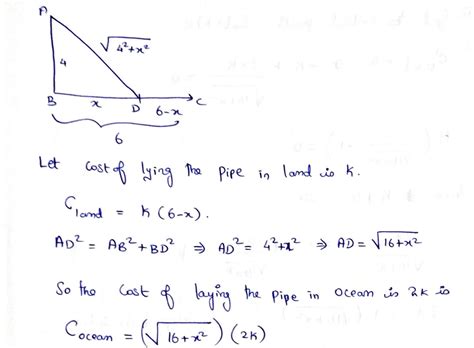 A
√4²+x²
4
B x D 6-x C
6
Let cost of lying the pipe in land is k.
C_land = k(6-x).
AD² = AB² + BD² ⇒ AD² = 4²+x² ⇒ AD = √16+x²
So the cost of laying the pipe in ocean is 2k is
C_ocean = (√16+x²)(2k)